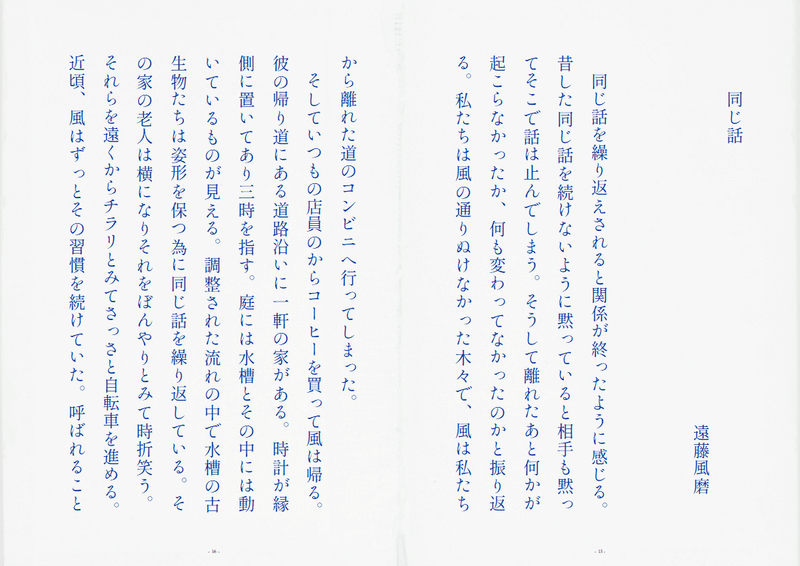 同じ話
遠藤風磨
同じ話を繰り返えされると関係が終ったように感じる。
昔した同じ話を続けないように黙っていると相手も黙っ
てそこで話は止んでしまう。そうして離れたあと何かが
起こらなかったか、何も変わってなかったのかと振り返
る。私たちは風の通りぬけなかった木々で、風は私たち
- 15 -
から離れた道のコンビニへ行ってしまった。
そしていつもの店員のからコーヒーを買って風は帰る。
彼の帰り道にある道路沿いに一軒の家がある。時計が縁
側に置いてあり三時を指す。庭には水槽とその中には動
いているものが見える。調整された流れの中で水槽の古
生物たちは姿形を保つ為に同じ話を繰り返している。そ
の家の老人は横になりそれをぼんやりとみて時折笑う。
それらを遠くからチラリとみてさっさと自転車を進める。
近頃、風はずっとその習慣を続けていた。呼ばれること